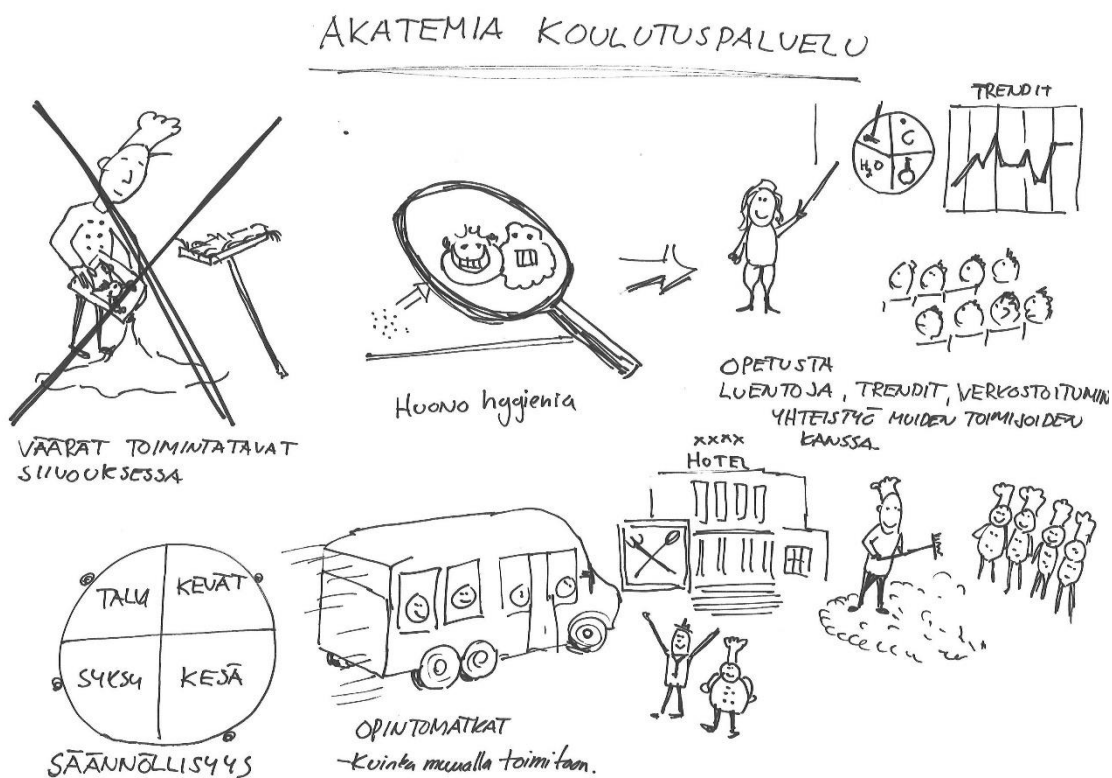 AKATEMIA KOULUTUSPALVELU
TRENDIT
H₂O
C
HUONO hygienia
VÄÄRÄT TOIMINTATAVAT
SIIVOUKSESSA
OPETUSTA
LUENTOJA, TRENDIT, VERKOSTOITUMIN
YHTEISTYÖ MUIDEN TOIMIJOIDEN
KANSSA.
xxxx
HOTEL
TALVI
KEVÄT
SYKSY
KESÄ
SÄÄNNÖLLISYYS
OPINTOMATKAT
-Kuinka muualla toimitaan.